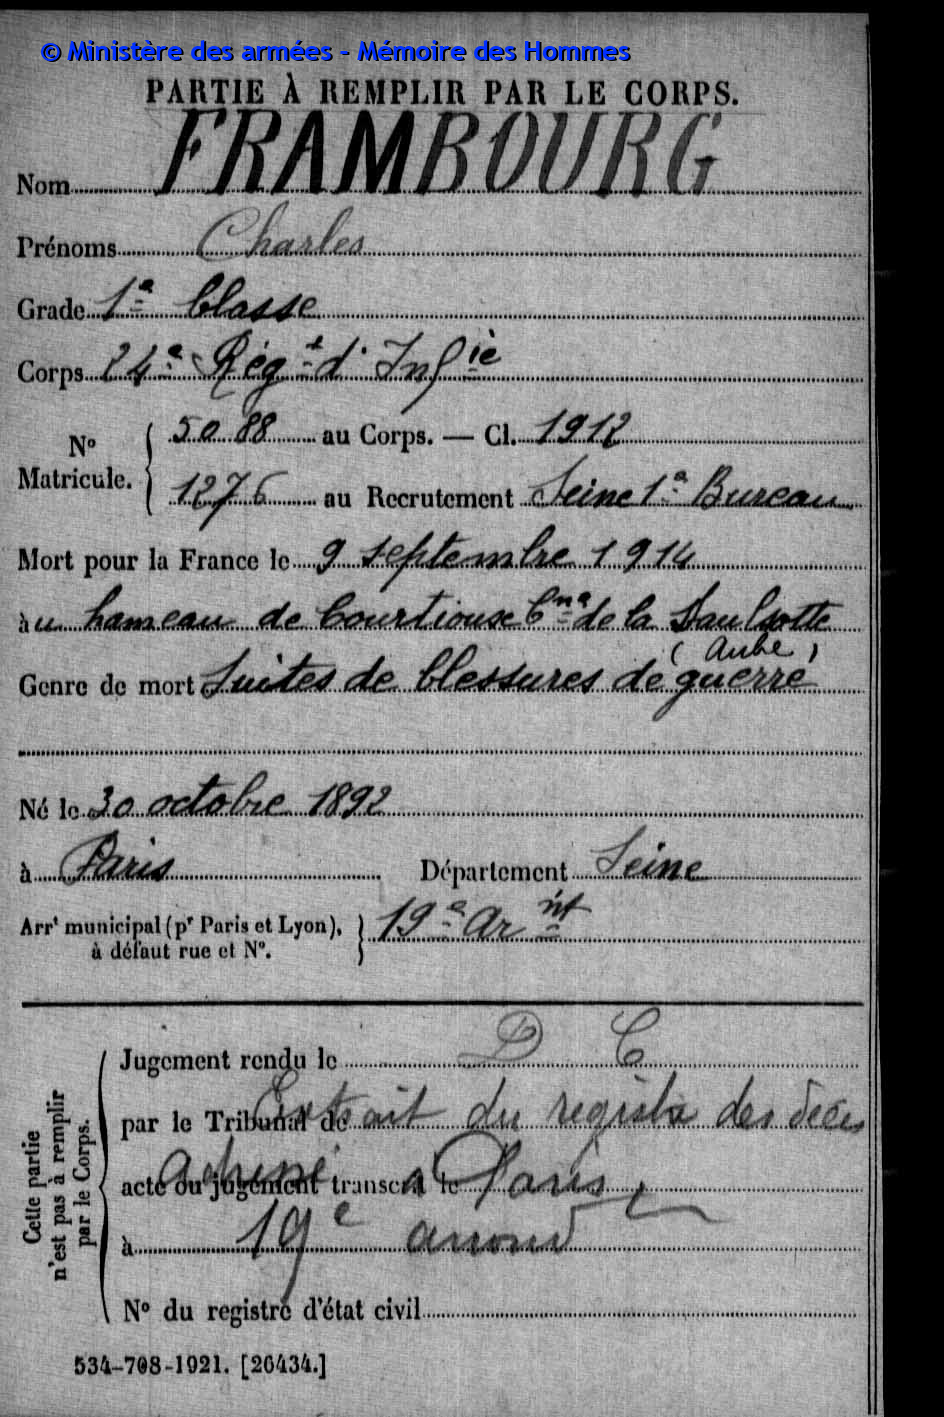 © Ministère des armées - Mémoire des Hommes
PARTIE À REMPLIR PAR LE CORPS.
Nom FRAMBOURG
Prénoms Charles
Grade 1e Classe
Corps 24e Régt d'Infie
No Matricule. 5088 au Corps. — Cl. 1912
1276 au Recrutement Seine 1e Bureau
Mort pour la France le 9 septembre 1914
àu hameau de Courtiouse Cne de la Saulsotte
(Aube)
Genre de mort Suites de blessures de guerre
Né le 30 octobre 1892
à Paris Département Seine
Arrt municipal (pr Paris et Lyon), à défaut rue et No. 19e Arnt
Cette partie n'est pas à remplir par le Corps.
Jugement rendu le D C
par le Tribunal de Extrait du registre des décès
acte ou jugement transcrit le adressé à Paris,
à 19e arrond
No du registre d'état civil
534-708-1921. [26434.]